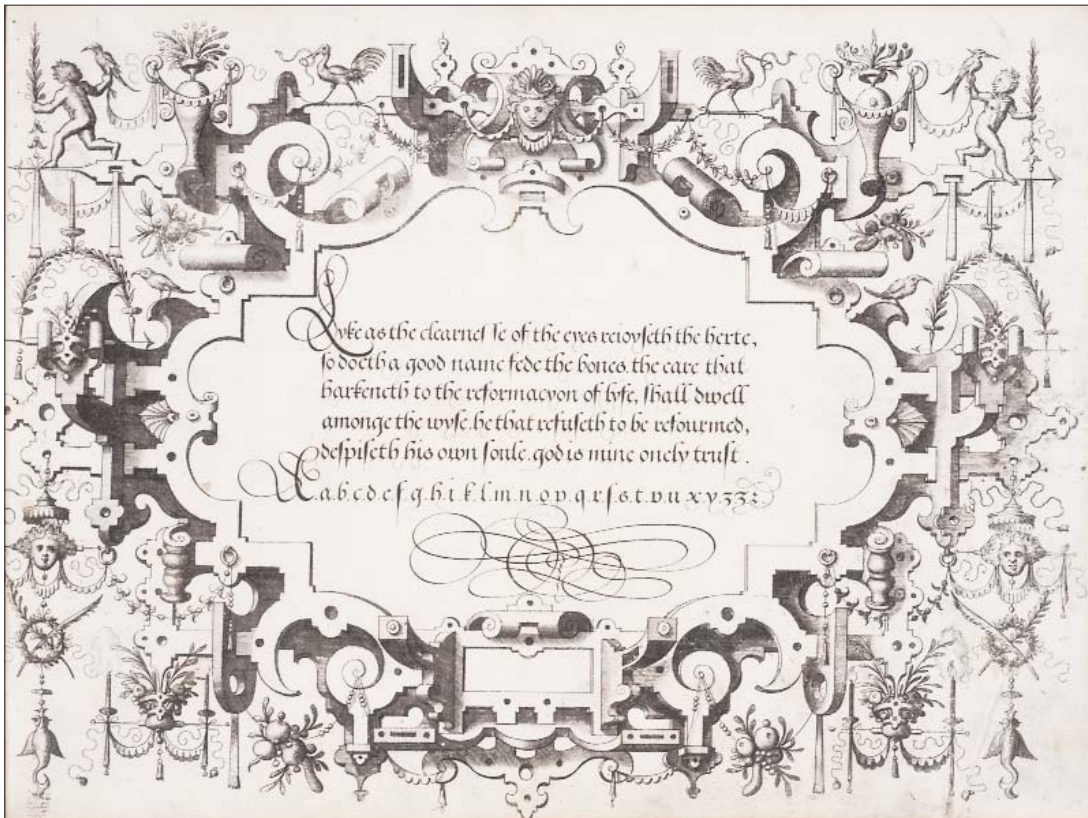 Lyke as the clearnesse of the eyes reioyseth the herte,
so doeth a good name fede the bones. the eare that
harkeneth to the reformacyon of lyfe, shall dwell
amonge the wyse. he that refuseth to be refourmed,
despiseth his own soule. god is mine onely trust.
A. a. b. c. d. e. f. g. h. i. k. l. m. n. o. p. q. r. s. s. t. v. u. x. y. z z: